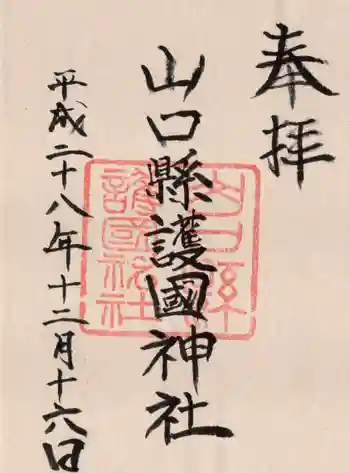 奉拝
山口縣護國神社
平成二十八年十二月十六日
山口縣
護國神社